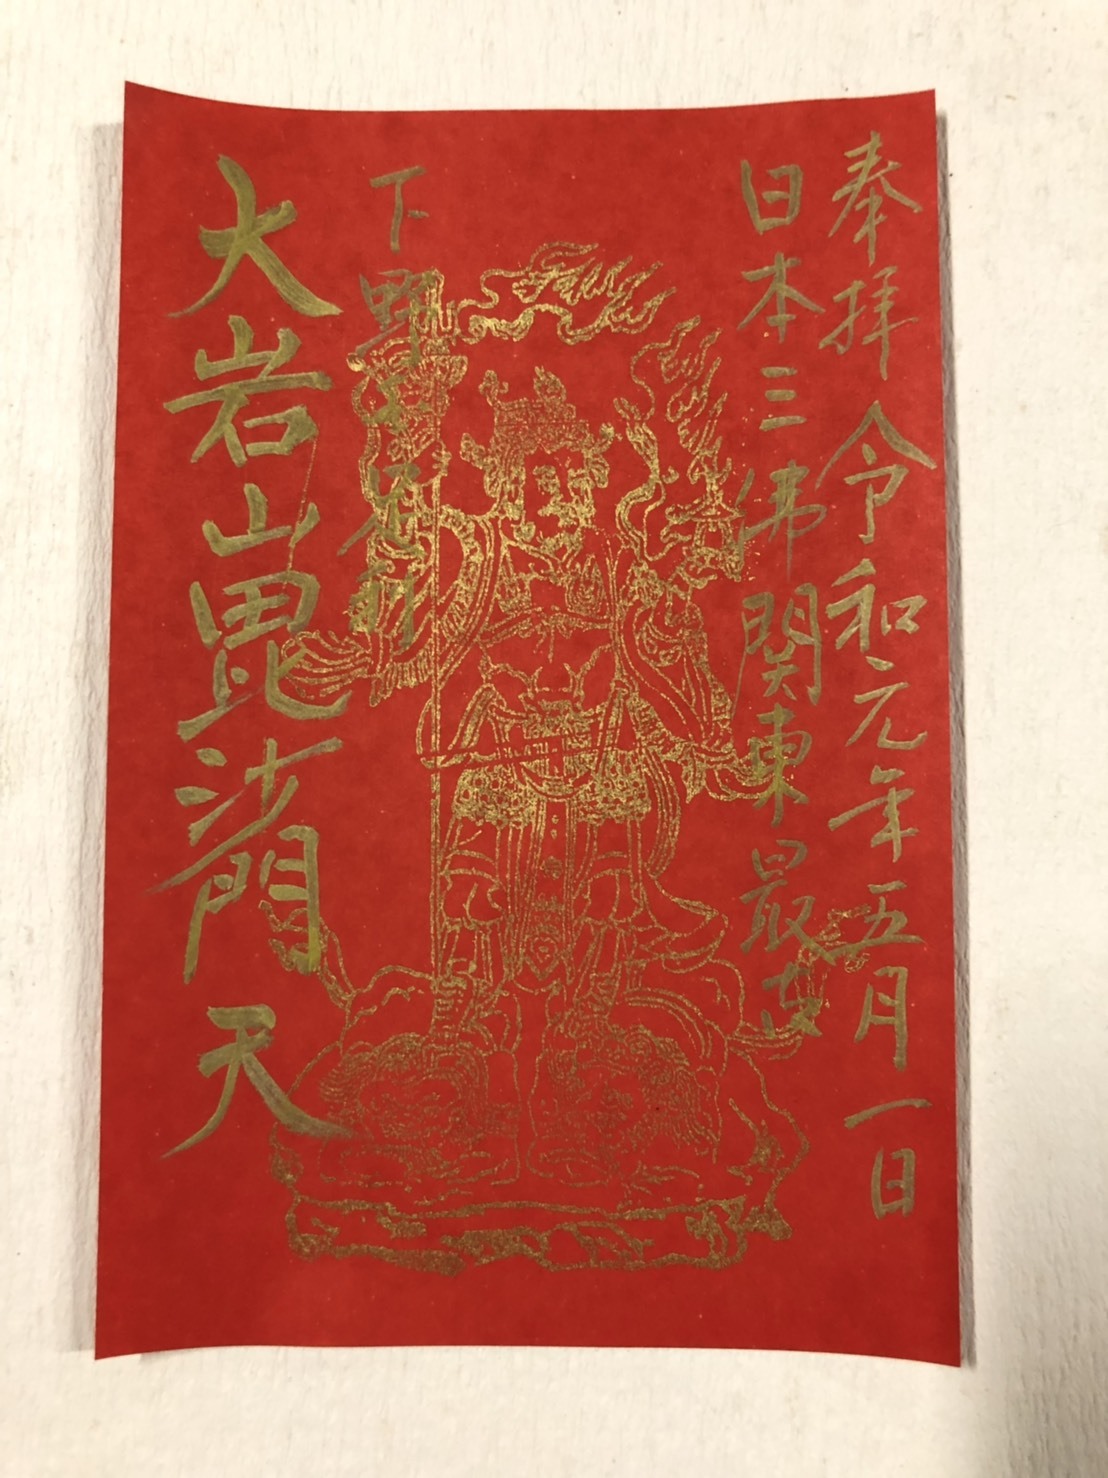 奉拝 令和元年五月一日
日本三佛関東最古
下野之名刹
大岩山毘沙門天